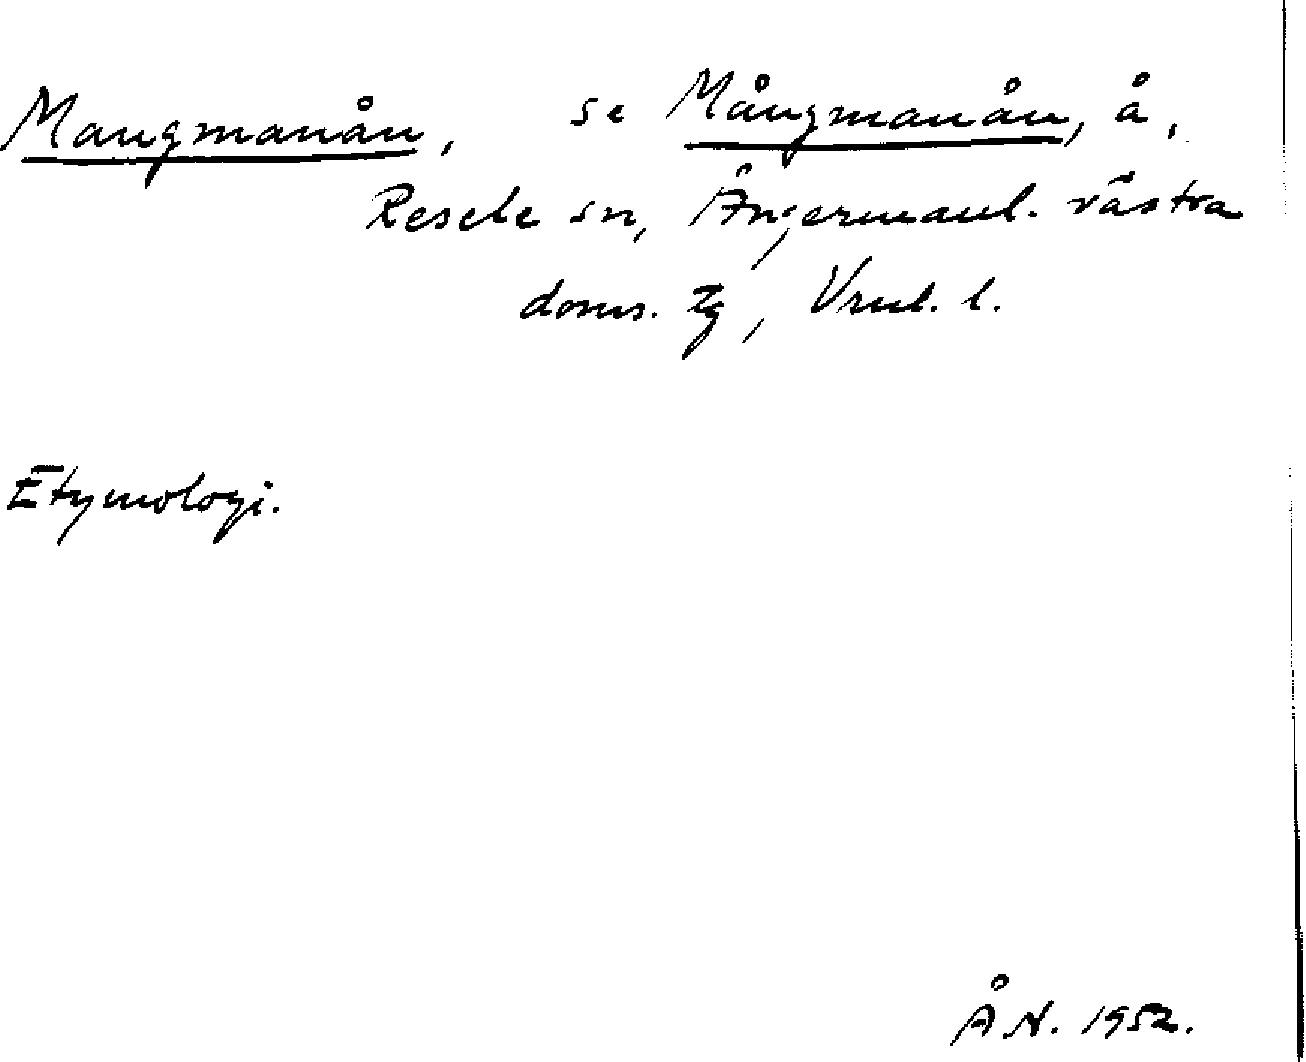 Mangmanån, se Mångmanån, å,
Resele sn, Ångermanl. västra
doms. tg, Vrnl. l.
Etymologi.
Å N. 1952.